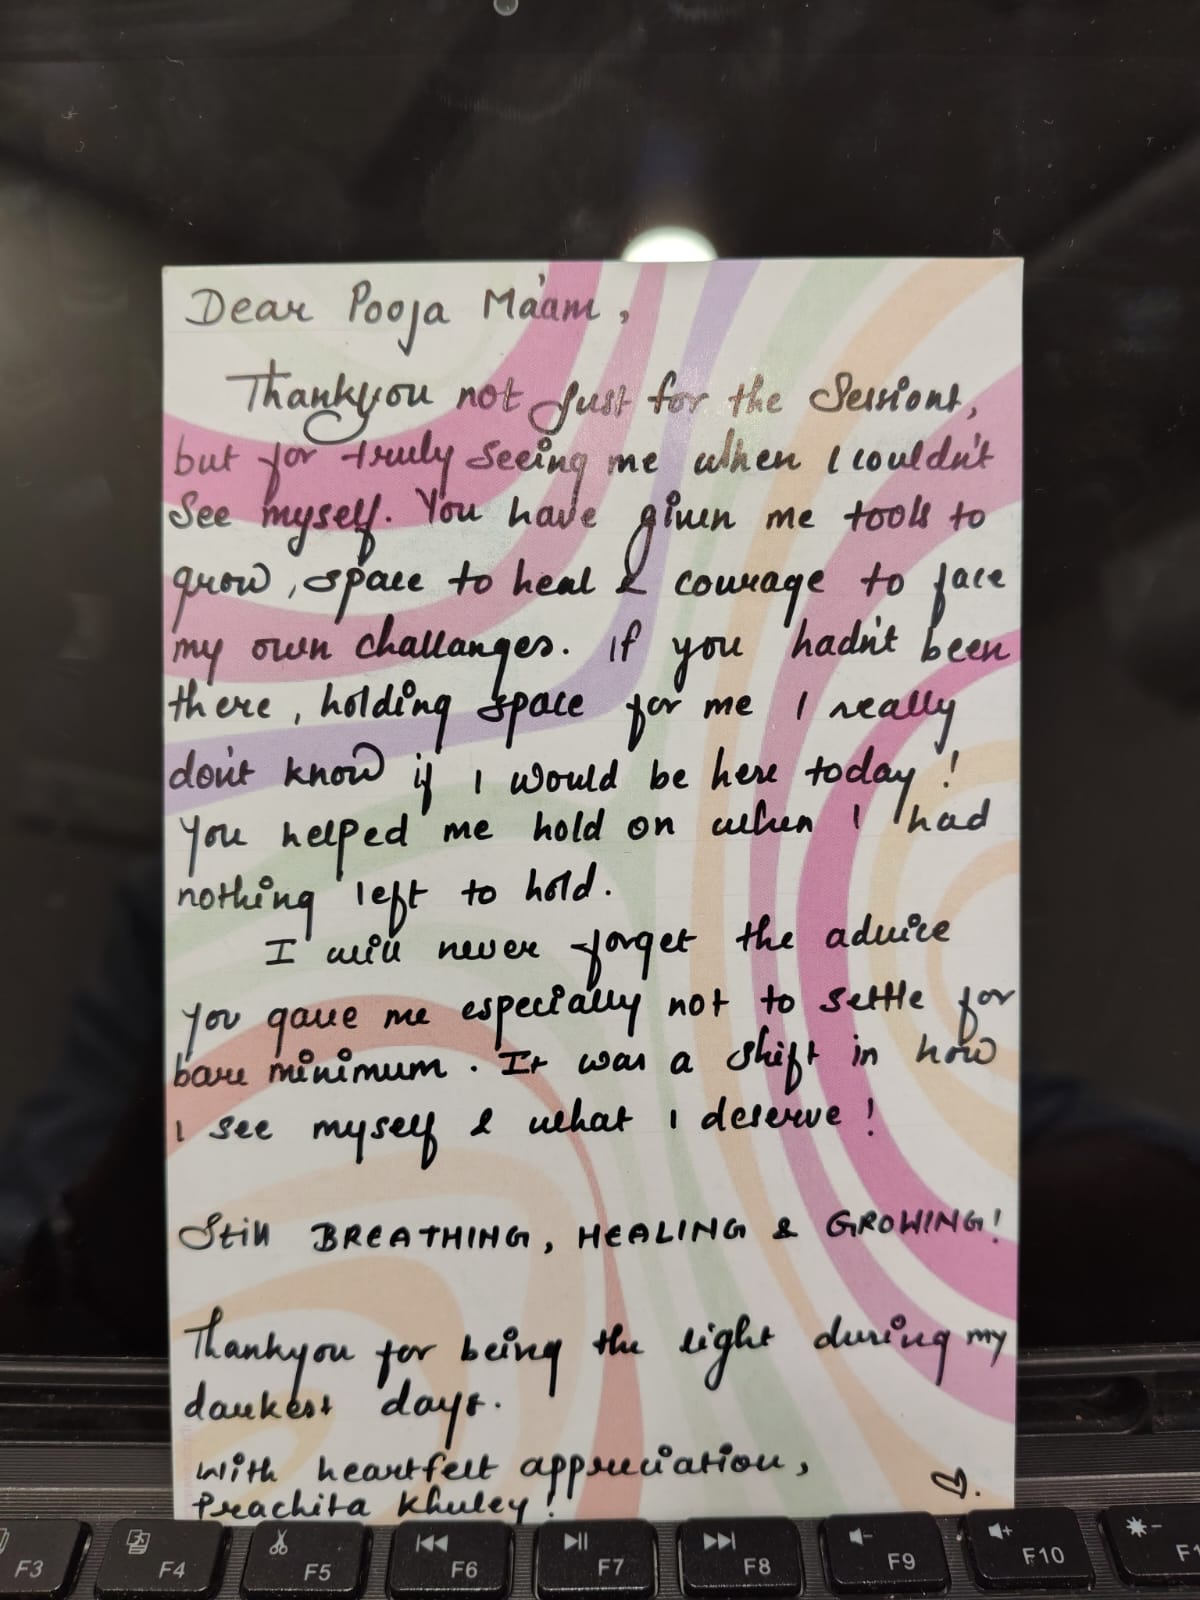 Dear Pooja Ma'am,
Thankyou not just for the Sessions,
but for truly seeing me when I couldn't
See myself. You have given me tools to
grow, space to heal & courage to face
my own challanges. If you hadn't been
there, holding space for me I really
don't know if I would be here today!
You helped me hold on when I had
nothing left to hold.
I will never forget the advice
you gave me especially not to settle for
bare minimum. It was a shift in how
I see myself & what I deserve!
Still BREATHING, HEALING & GROWING!
Thankyou for being the light during my
darkest days.
With heartfelt appreciation,
Prachita Khuley!
F3 F4 F5 F6 F7 F8 F9 F10